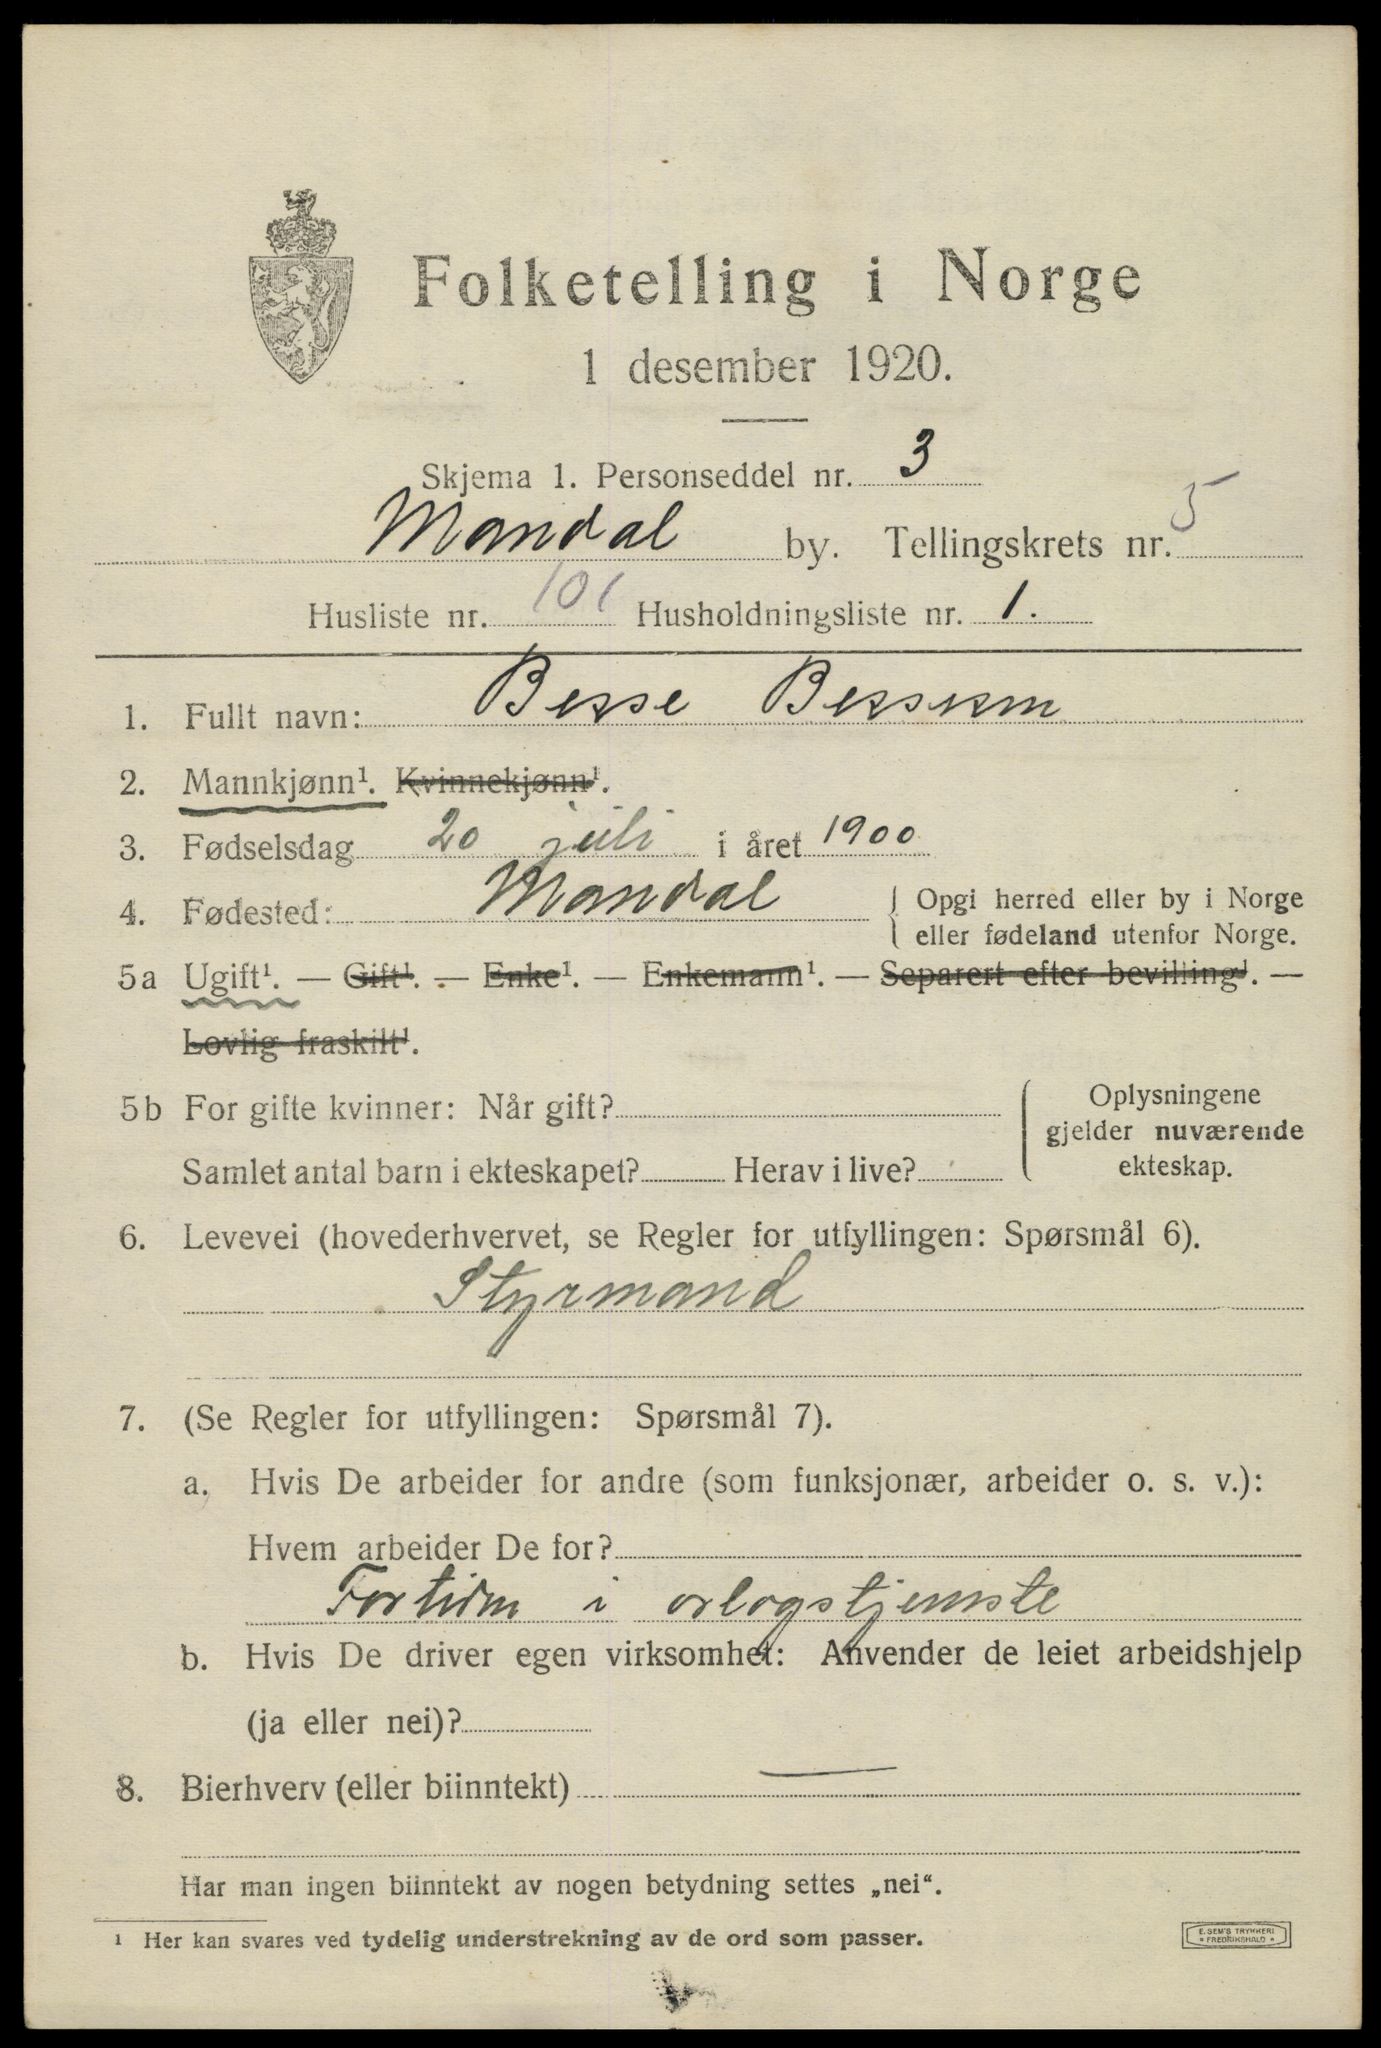 Folketelling i Norge
1 desember 1920.
Skjema 1. Personseddel nr. 3
Mandal by. Tellingskrets nr. 5
Husliste nr. 101 Husholdningsliste nr. 1.
1. Fullt navn: Besse Bessesen
2. Mannkjønn¹. Kvinnekjønn¹.
3. Fødselsdag 20 juli i året 1900
4. Fødested: Mandal { Opgi herred eller by i Norge
eller fødeland utenfor Norge.
5a Ugift¹. — Gift¹. — Enke¹. — Enkemann¹. — Separert efter bevilling¹. —
Lovlig fraskilt¹.
5b For gifte kvinner: Når gift? { Oplysningene
gjelder nuværende
Samlet antal barn i ekteskapet? Herav i live? ekteskap.
6. Levevei (hovederhvervet, se Regler for utfyllingen: Spørsmål 6).
Styrmand
7. (Se Regler for utfyllingen: Spørsmål 7).
a. Hvis De arbeider for andre (som funksjonær, arbeider o. s. v.):
Hvem arbeider De for?
For tiden i orlogstjeneste
b. Hvis De driver egen virksomhet: Anvender de leiet arbeidshjelp
(ja eller nei)?
8. Bierhverv (eller biinntekt) —
Har man ingen biinntekt av nogen betydning settes „nei“.
¹ Her kan svares ved tydelig understrekning av de ord som passer.
E. SEM'S TRYKKERI
* FREDRIKSHALD *